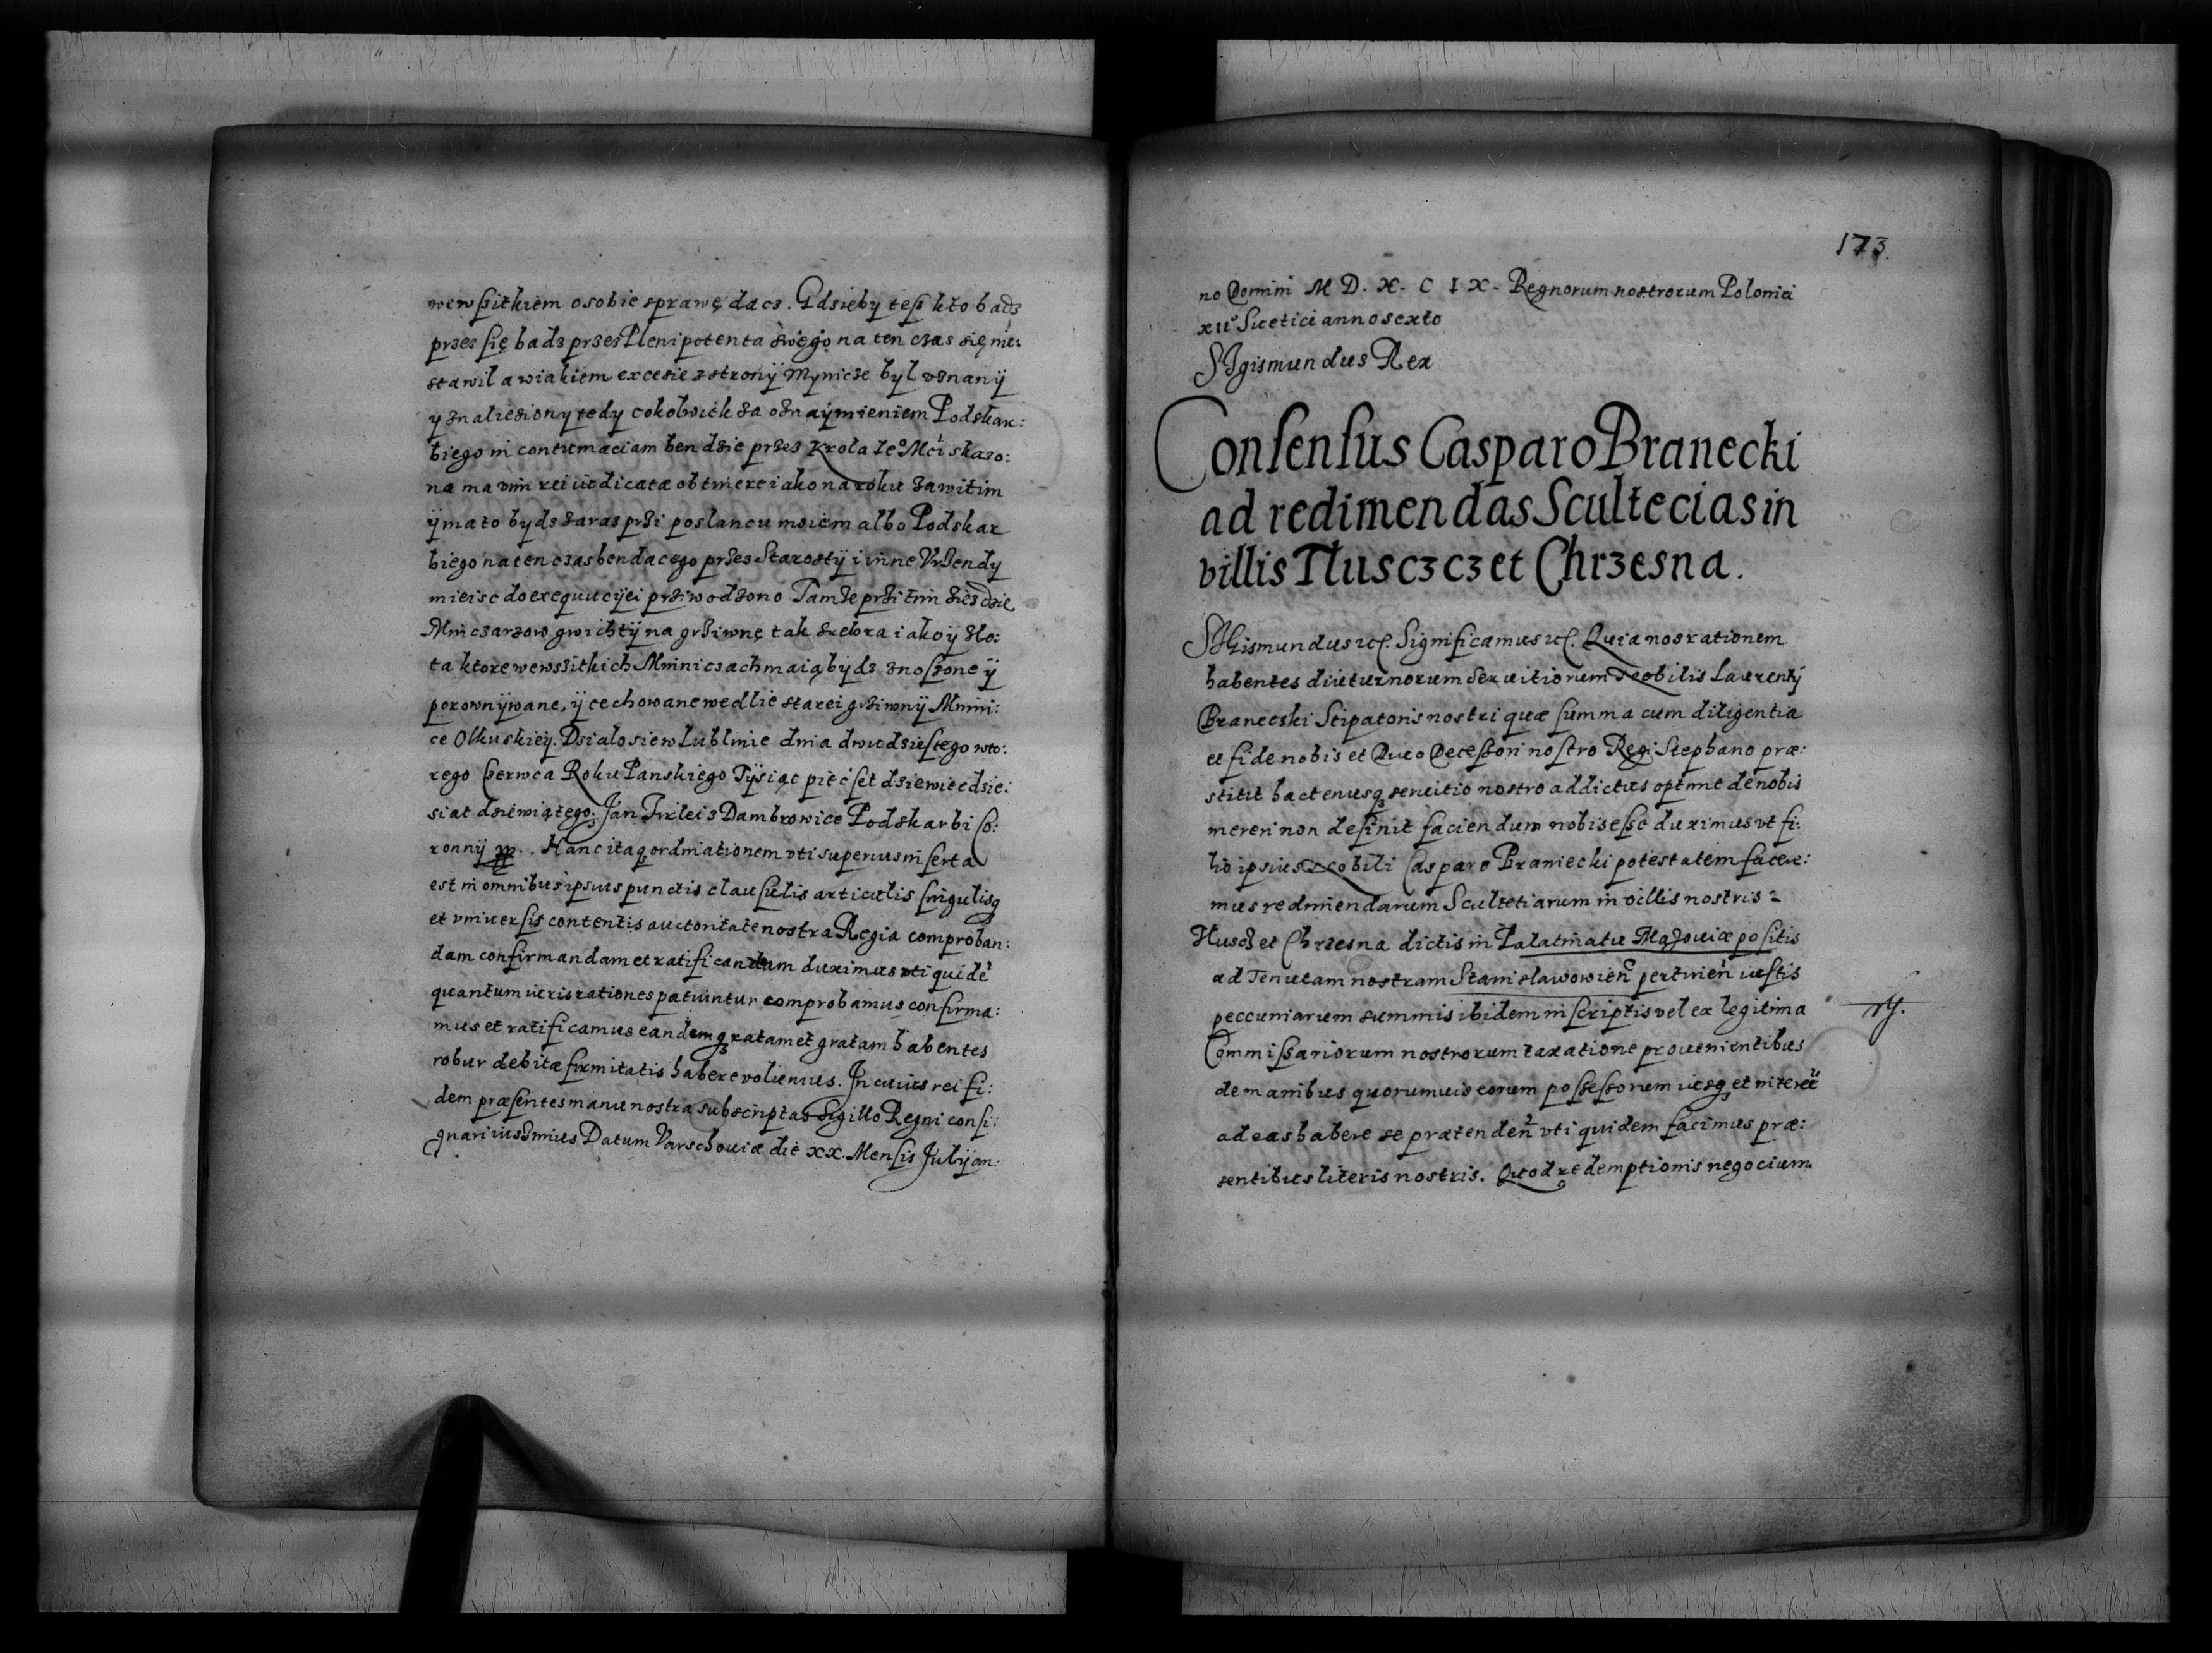 wewszitkiem osobie sprawę dacz. Gdzieby tesz kto badz
przes się badz przes Plenipotenta swego na ten czas się nie
stawil a wiakiem excesie z strony Mynicze byl vznany
y znalieziony tedy cokolwiek za oznaymieniem Podskar:
biego in contumaciam bendzie przes Krola Ieº Mci skazo:
na ma vim rei iudicatæ obtinere iako na roku zawitim
y ma to bydz zaras przi poslancu moiem albo Podskar
biego na ten czas bendacego przes Starosty i inne Vrzendy
mieisc do exequucyei prziwodzono Tamze przi tim ziezdzie
Mincarzow gwichty na grziwnę tak srebra iako y zlo:
ta ktore wewszitkich Minnicsach maią bydz znoszone y
porownywane, y cechowane wedlie starei grziwny Minni:
ce Olkuskiey. Dzialo sie w Lublinie dnia dwudziestego wto:
rego Czerwca Roku Panskiego Tysiąc piećset dziewiedzie:
siat dziewiątego: Jan Firlei z Dambrowice Podskarbi Co:
ronny. Hanc itaq₃ ordinationem vti superius inserta
est in omnibus ipsius punctis clausulis articulis singulisq₃
et vniuersis contentis auctoritate nostra Regia comproban:
dam confirmandam et ratificandum duximus vti quidē
quantum iuris rationes patiuntur comprobamus confirma:
mus et ratificamus eandemq₃ ratam et gratam habentes
robur debitæ firmitatis habere volumus. In cuius rei fi:
dem præsentes manu nostra subscriptas Sigillo Regni consi:
gnari iussimus Datum Varschouiæ die XX. Mensis Julij an:
173.
no Domini M D. X. C I X. Regnorum nostrorum Polonici
XIIº Suetici anno sexto
SIgismundus Rex
Consensus Casparo Branecki
ad redimendas Scultecias in
villis Tlusczcz et Chrzesna.
SIgismundus etc. Significamus etc. Quia nos rationem
habentes diuturnorum seruitiorum Nobilis Laurentÿ
Branecski Stipatoris nostri quæ summa cum diligentia
et fide nobis et Diuo Decessori nostro Regi Stephano præ:
stitit hactenusq₃ seruitio nostro addictus optime de nobis
mereri non desinit faciendum nobis esse duximus vt fi:
lio ipsius Nobili Casparo Braniecki potestatem facere:
mus redimendarum Scultetiarum in villis nostris =
Tlusc₃ et Chrzesna dictis in Palatinatu Mazouiæ positis
ad Tenutam nostram Stanislawowien̄ pertinen̄ iustis
peccuniarum summis ibidem inscriptis vel ex legitima
Commissariorum nostrorum taxatione prouenientibus
de manibus quorumuis eorum possessorum iusq₃ et interesse
ad eas habere se prætenden̄ vti quidem facimus præ:
sentibus literis nostris. Quod redemptionis negocium